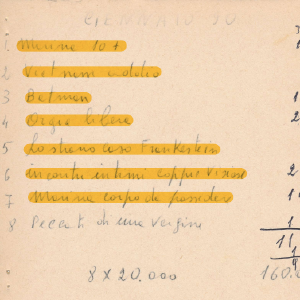 GENNAIO 90
1 Marina 107
2 Vietnam addio
3 Batman
4 Orgia libera
5 Lo strano caso Frankestein 2
6 incontri intimi coppie viziose 2
7 Marina corpo da possedere 1
8 Peccati di una vergine 1
11
8 X 20.000 160.